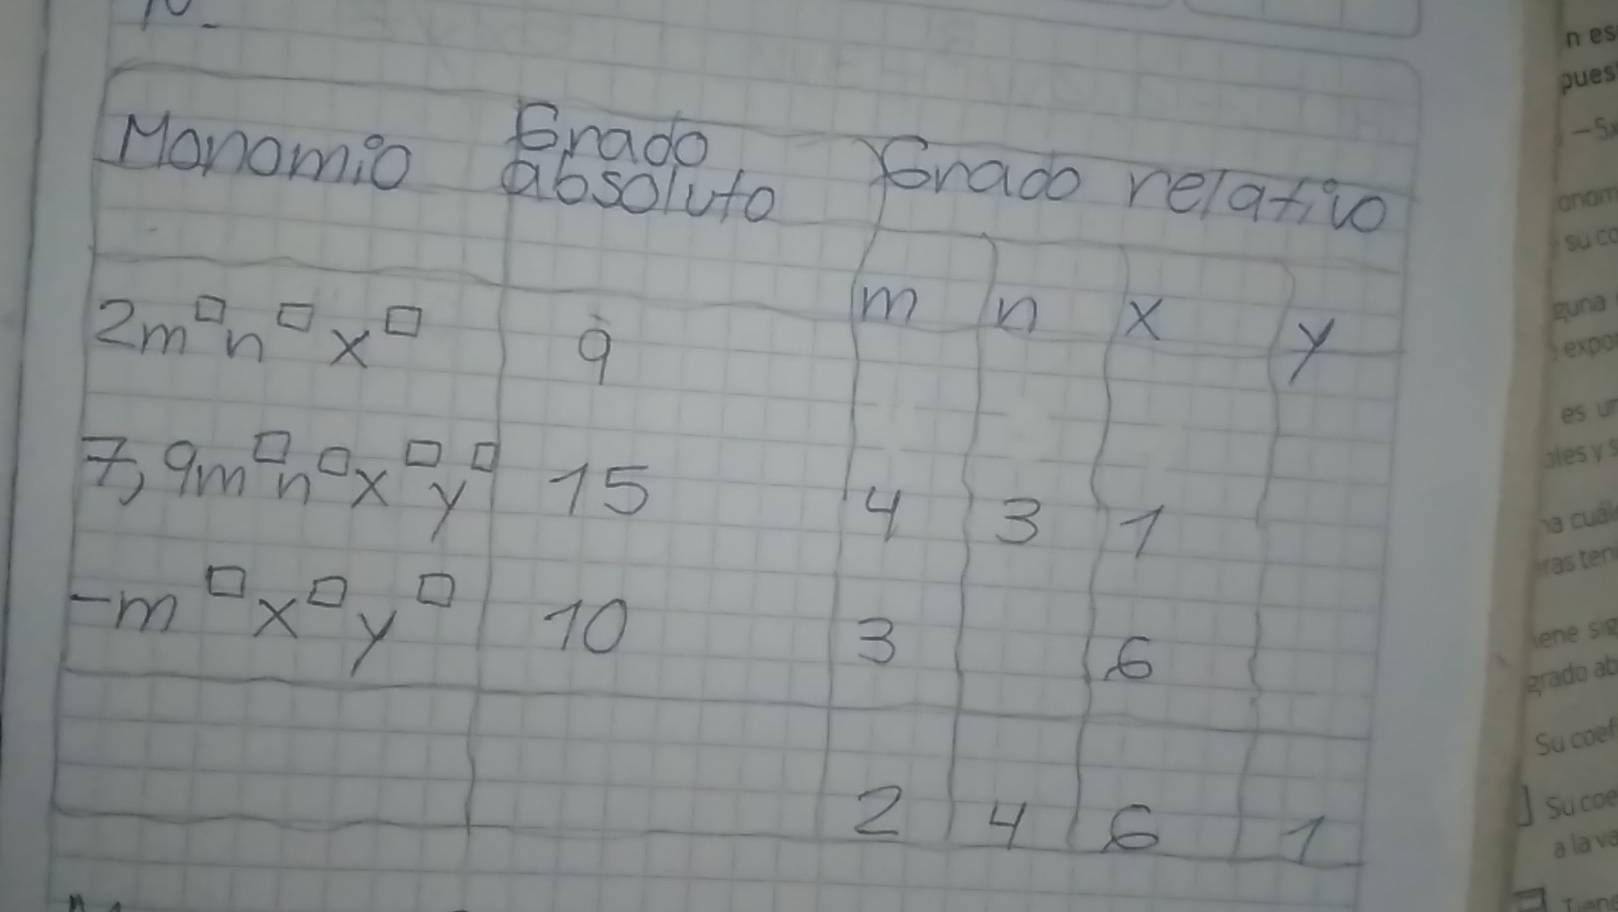 Monomio Grado absoluto Grado relativo
m n x y
2m□n□x□ 9
7,9m□n□x□y□ 15 4 3 1
-m□x□y□ 10 3 6
2 4 6 1
n es
pues
guna
expo
es un
bles y s
a cuál
ras ten
ene sig
grado ab
Su coef
Su coe
a la va
Tiene